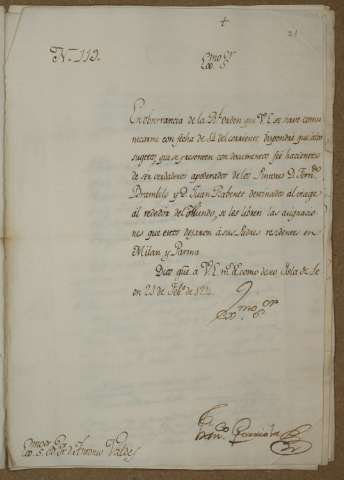 21
N.º 113.
Exmo. Sor.
En observancia de la Rl. orden que V.E. se sirve comu
nicarme con fecha de 14 del corriente, dispondré que a los
sugetos, que se presenten con documentos feé hacientes
de ser verdaderos apoderados de los Pintores D. Fern.do
Brambila y D. Juan Rabenet destinados al viage
al rededor del Mundo, se les libren las asignacio
nes que estos dexaron á sus Padres residentes en
Milan y Parma.
Dios gue. á V.E. ms. as. como deseo Isla de
en 23 de Feb.o de
Exmo. Sor.
Exmo. Sor. Bo. Fr. Dn. Antonio Valdes